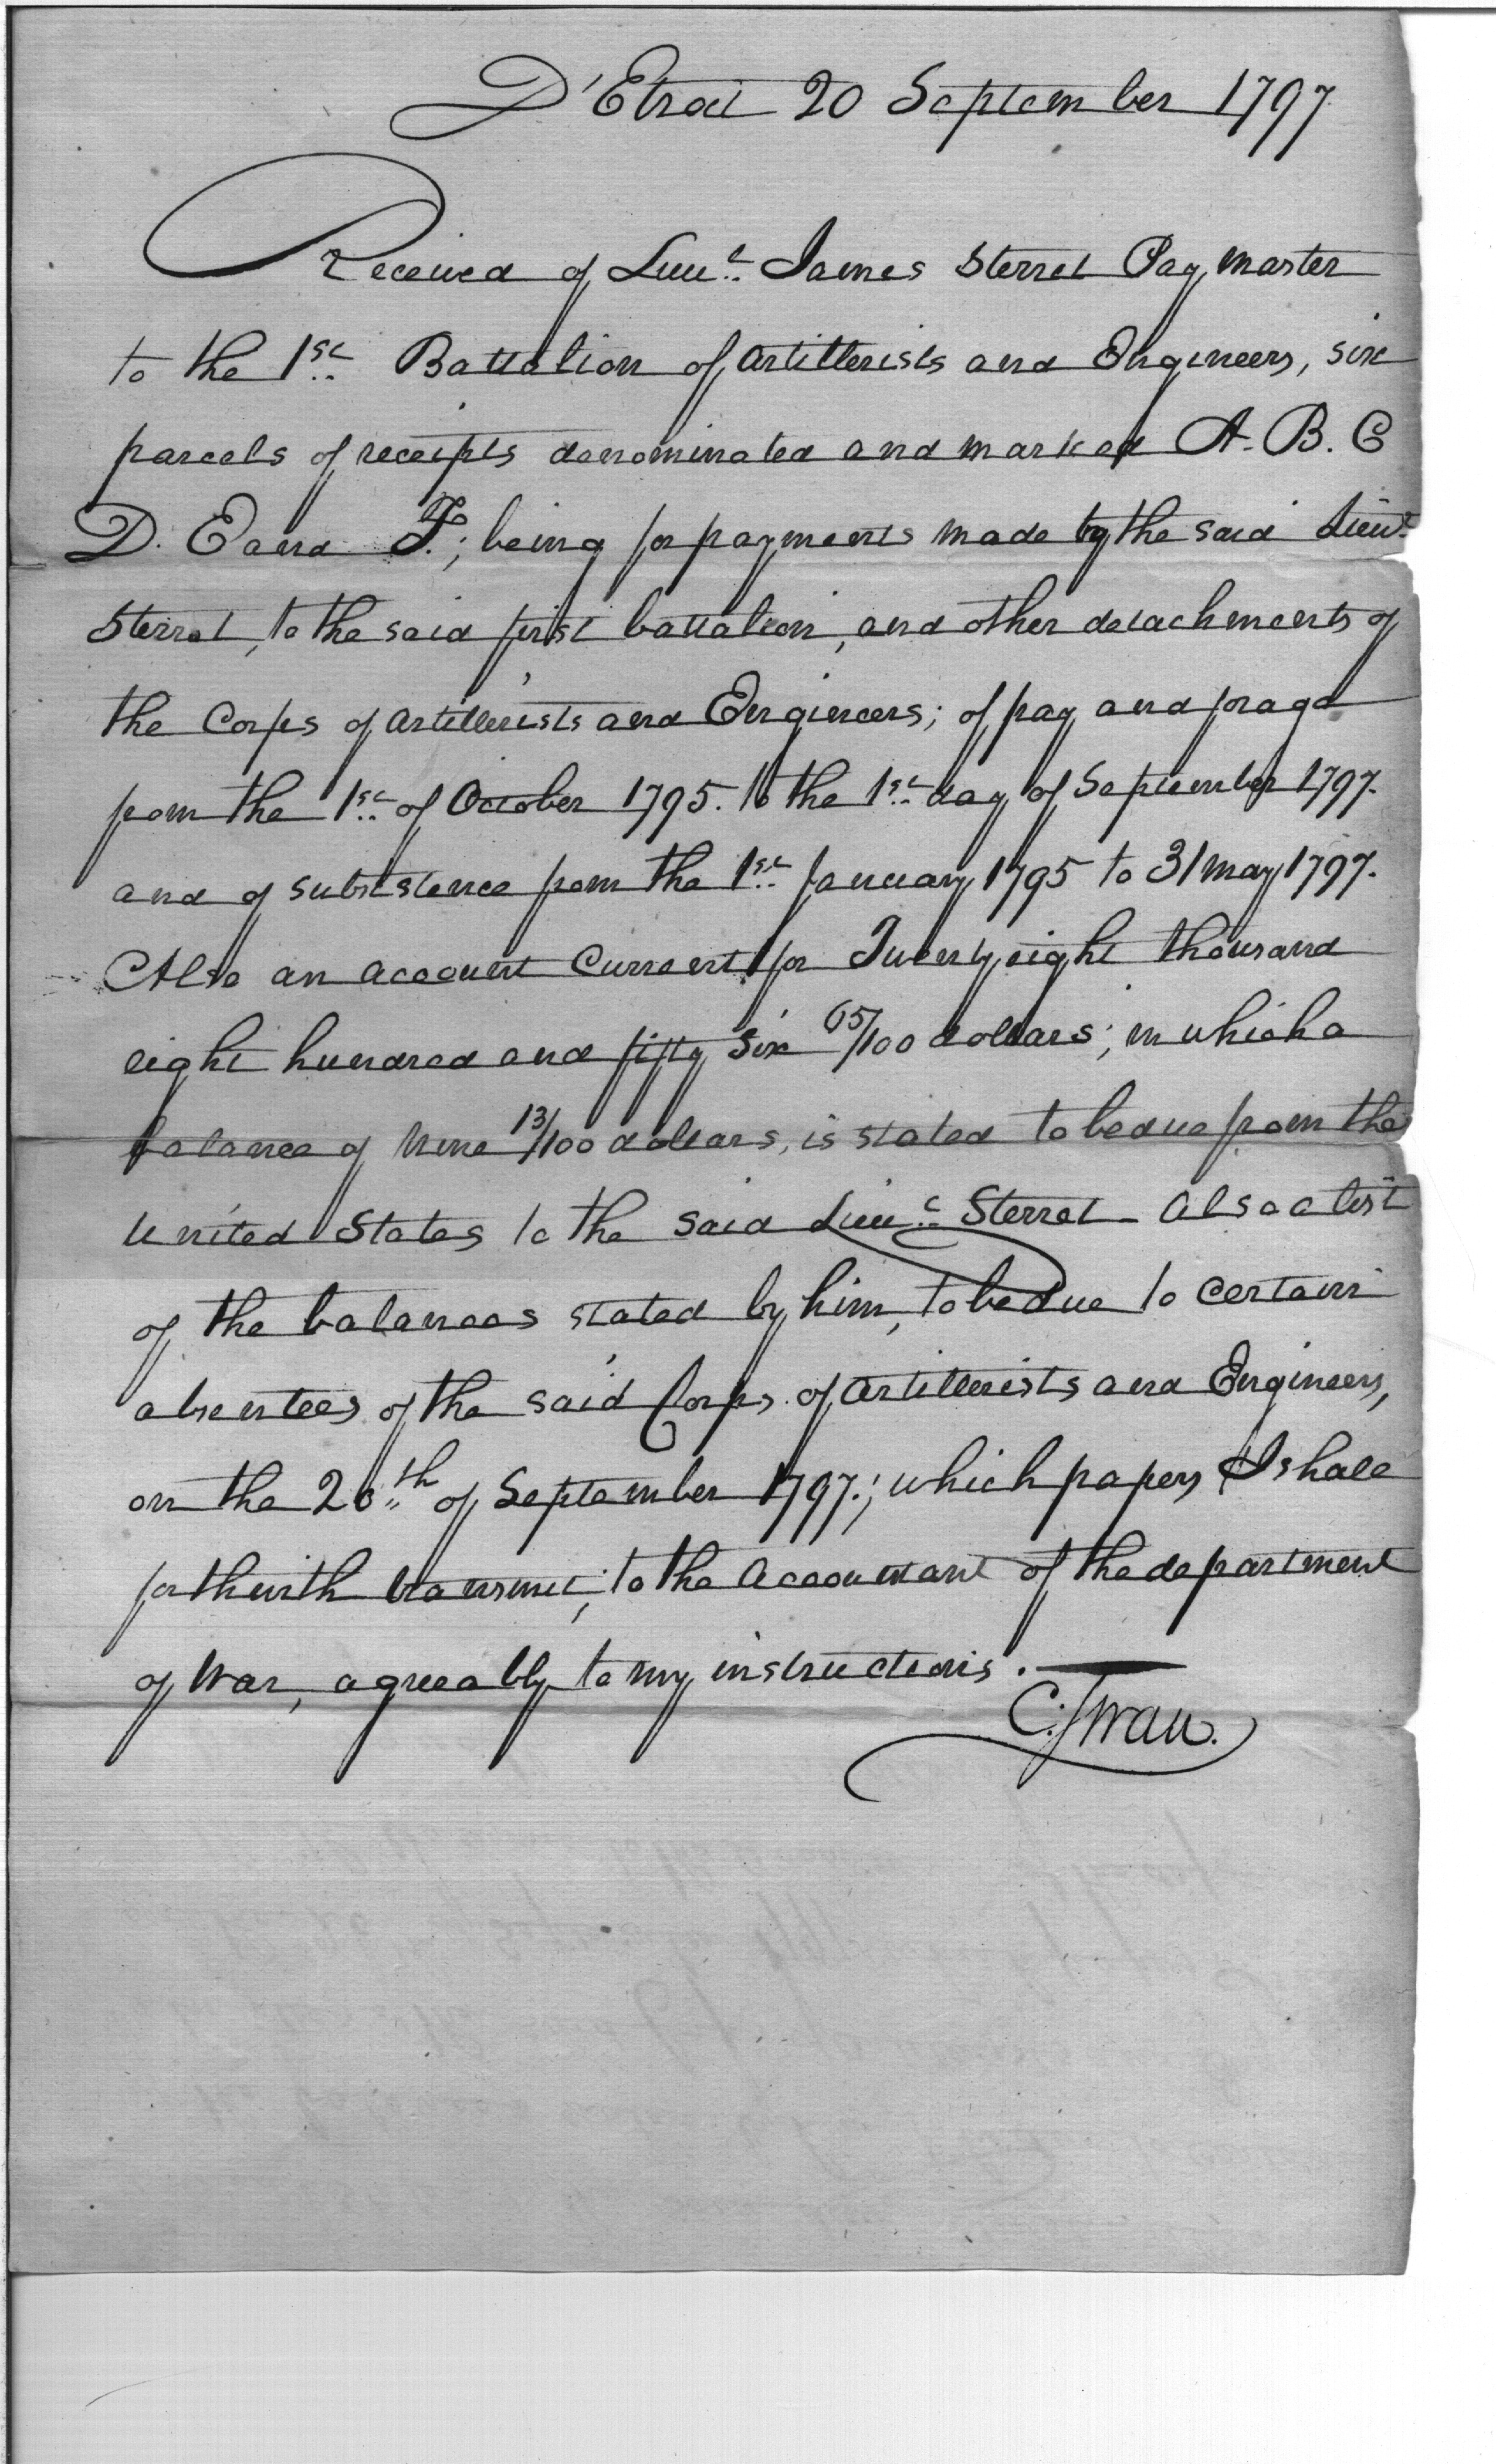 D'Etroit 20 September 1797
Received of Lieut. James Sterret Pay master
to the 1st. Battalion of Artillerists and Engineers, six
parcels of receipts denominated and marked A. B. C
D. E and F.; being for payments made by the said Lieut.
Sterret, to the said first battalion, and other detachments of
the Corps of Artillerists and Engineers; of pay and forage
from the 1st. of October 1795. to the 1st. day of September 1797.
and of subsistence from the 1st. January 1795 to 31 May 1797.
Also an account Current for Twenty eight thousand
eight hundred and fifty six 65/100 dollars; in which a
balance of Nine 13/100 dollars, is stated to be due from the
United States to the said Lieut. Sterret – Also a list
of the balances stated by him, to be due to certain
absentees of the said Corps of Artillerists and Engineers,
on the 20th of September 1797.; which papers I shall
forthwith transmit, to the Accountant of the department
of War, agreeably to my instructions. —
C. Swan.